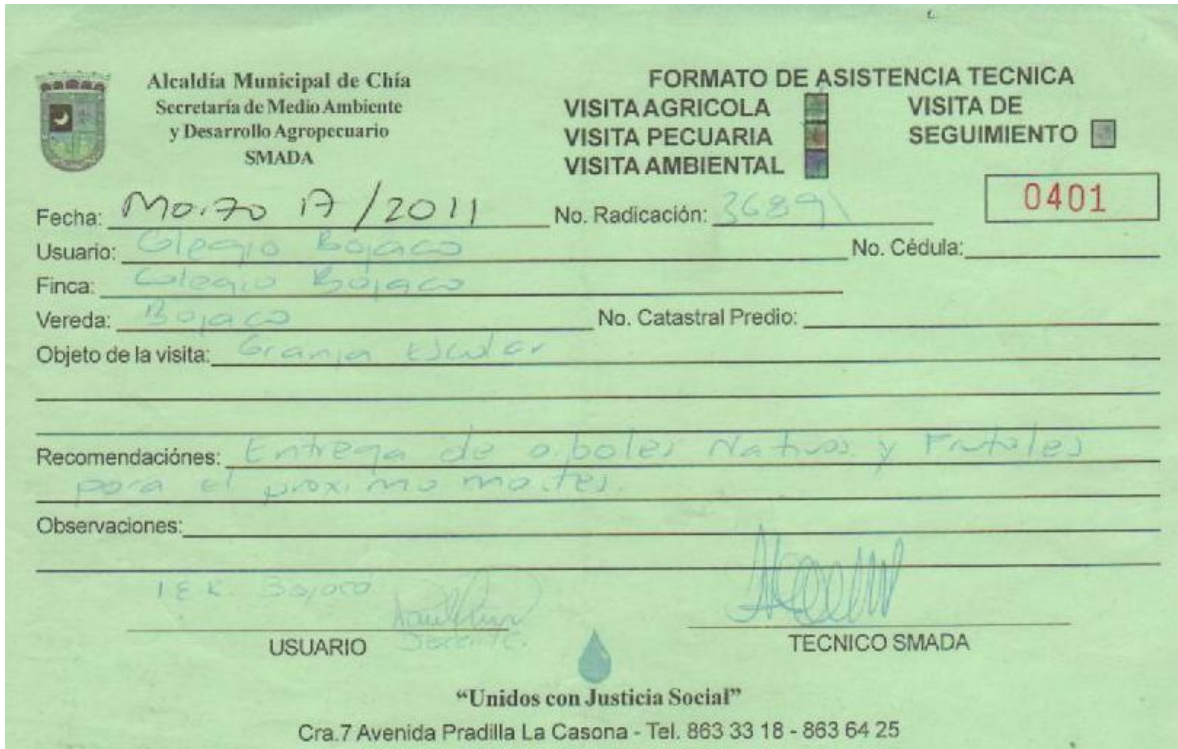 Alcaldía Municipal de Chía
Secretaría de Medio Ambiente
y Desarrollo Agropecuario
SMADA
FORMATO DE ASISTENCIA TECNICA
VISITA AGRICOLA
VISITA PECUARIA
VISITA AMBIENTAL
VISITA DE
SEGUIMIENTO
0401
Fecha: Marzo 17 / 2011 No. Radicación: 36891
Usuario: Colegio Bojaca No. Cédula:
Finca: Colegio Bojaca
Vereda: Bojaca No. Catastral Predio:
Objeto de la visita: Granja Escolar
Recomendaciónes: Entrega de arboles Nativos y Frutales
para el proximo martes.
Observaciones:
Bojacá
USUARIO Docente.
TECNICO SMADA
“Unidos con Justicia Social”
Cra.7 Avenida Pradilla La Casona - Tel. 863 33 18 - 863 64 25